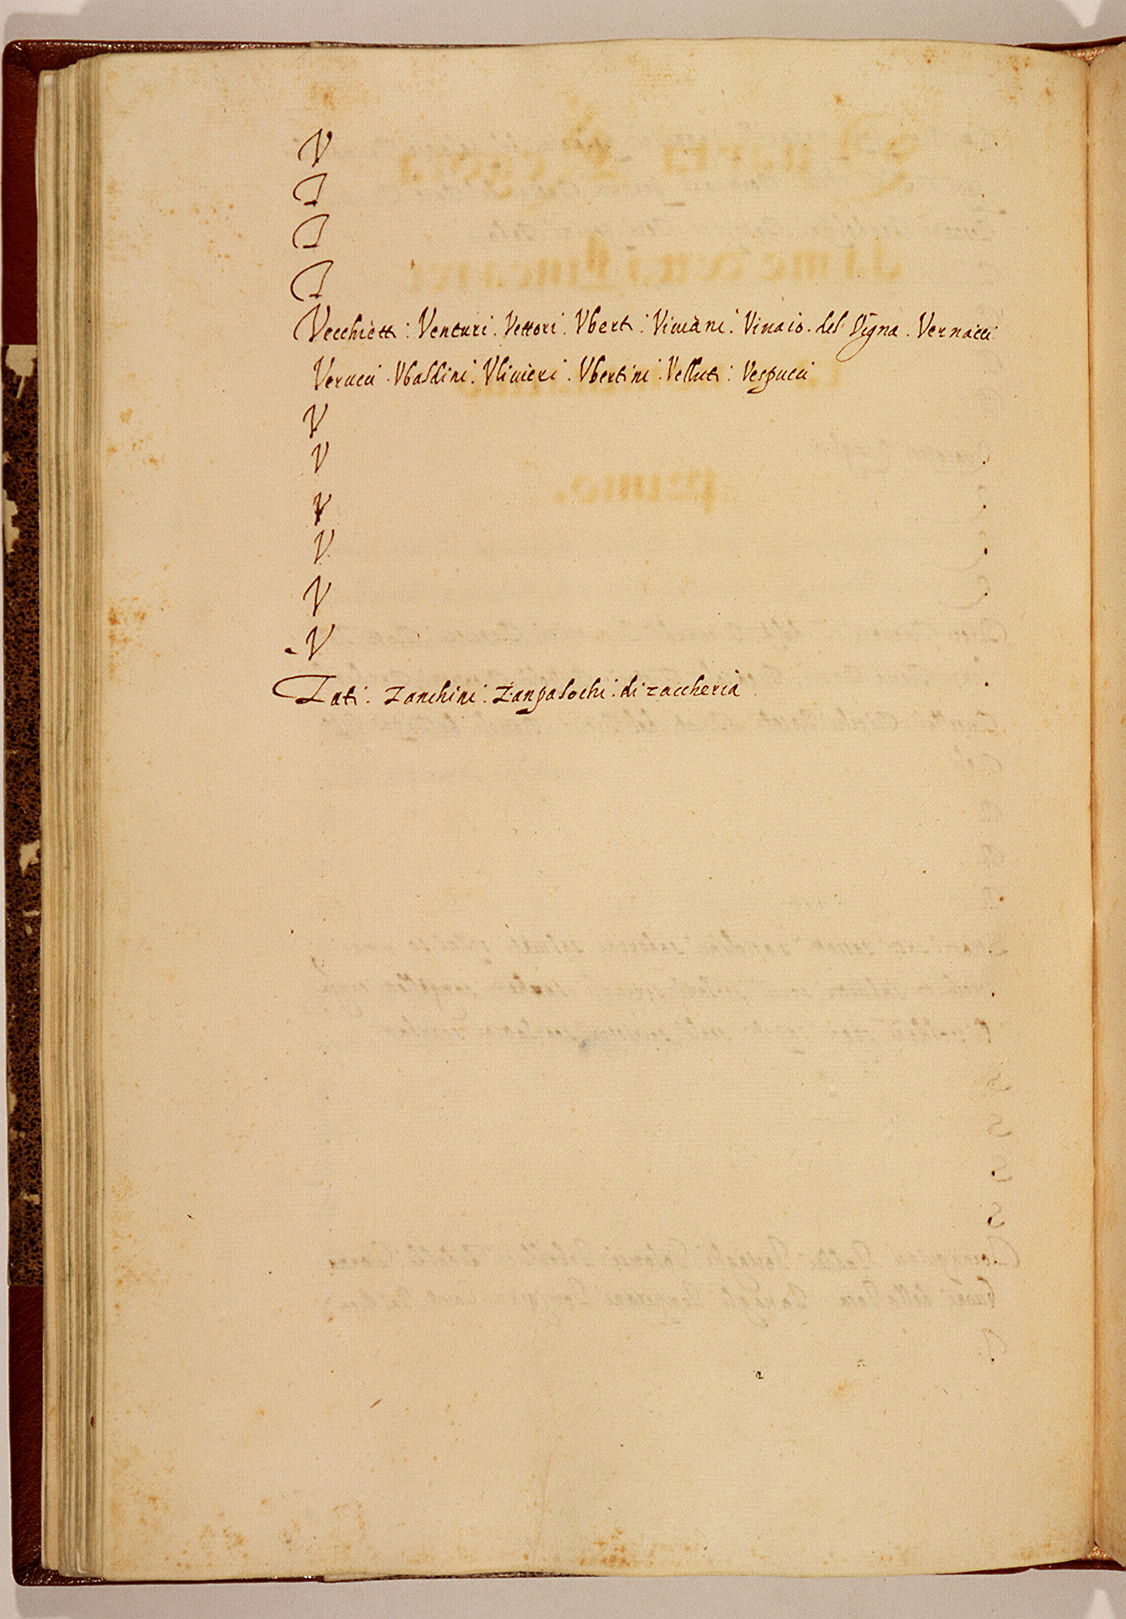 V
T
T
T
Vecchiett: Venturi. Vettori. Vbert: Viuiani. Viuaio. del Vigna. Vernacci
Verucci. Vbaldini. Vliuieri. Vbertini. Velluti: Vespucci
V
V
V
V
V
V
Zati. Zanchini. di zaccheria